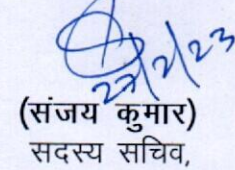 27/2/23
(संजय कुमार)
सदस्य सचिव,